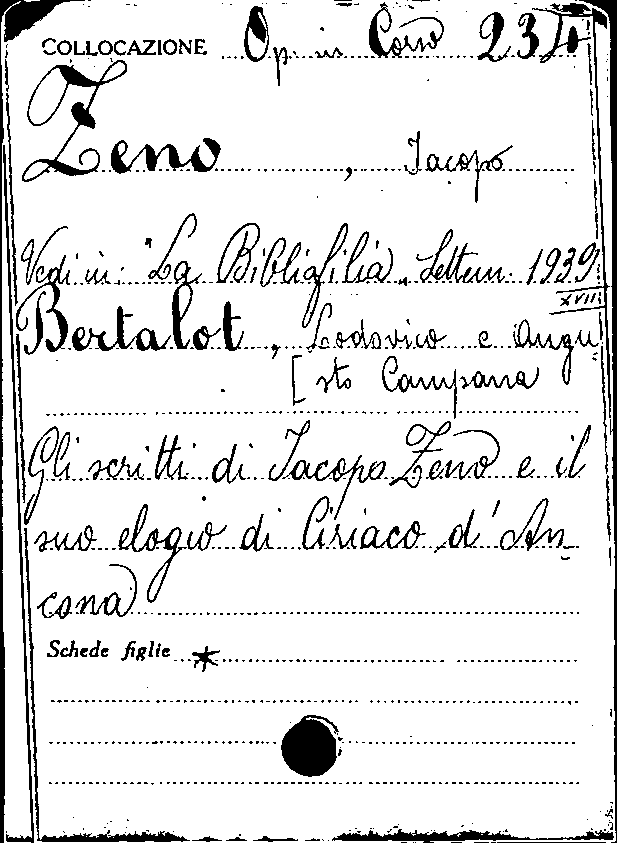 COLLOCAZIONE Op. in Corso 234
Zeno, Jacopo
Vedi in: "La Bibliofilia" Settem. 1939
XVII
Bertalot, Lodovico e Augu-
[sto Campana
Gli scritti di Jacopo Zeno e il
suo elogio di Ciriaco d'An-
cona
Schede figlie *